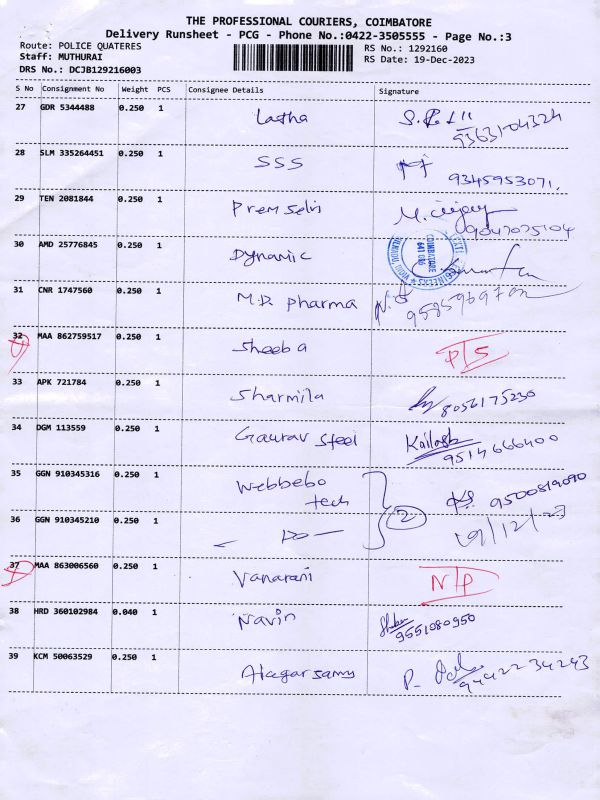 THE PROFESSIONAL COURIERS, COIMBATORE
Delivery Runsheet - PCG - Phone No.:0422-3505555 - Page No.:3
Route: POLICE QUATERES RS No.: 1292160
Staff: MUTHURAI RS Date: 19-Dec-2023
DRS No.: DCJB129216003
S No Consignment No Weight PCS Consignee Details Signature
27 GDR 5344488 0.250 1 Latha
9363104324
28 SLM 335264451 0.250 1 SSS
9345953071.
29 TEN 2081844 0.250 1 Prem Selvi
9047075104
30 AMD 25776845 0.250 1 Dynamic
COIMBATORE
31 CNR 1747560 0.250 1 M.D. pharma
32 MAA 862759517 0.250 1 Sheeba P/S
33 APK 721784 0.250 1 Sharmila 8056175230
34 DGM 113559 0.250 1 Gaurav Steel Kailash
9514666400
35 GGN 910345316 0.250 1 Webbebo
tech 9500819090
36 GGN 910345210 0.250 1 - Do - 2 19/12/23
37 MAA 863006560 0.250 1 Vanarani N/P
38 HRD 360102984 0.040 1 Navin
9551080950
39 KCM 50063529 0.250 1 Alagarsamy
9442234243